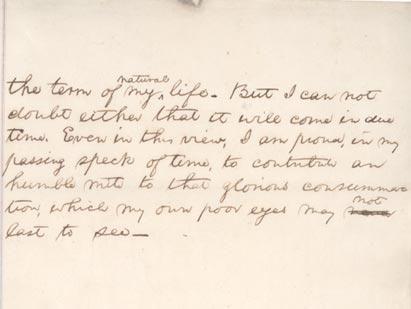 the term of my natural life. But I can not
doubt either that it will come in due
time. Even in this view, I am proud, in my
passing speck of time, to contribute an
humble mite to that glorious consumma-
tion, which my own poor eyes may not
last to see—